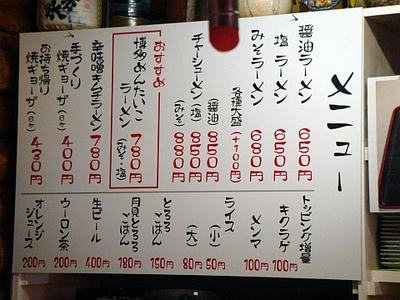 メニュー
醤油ラーメン 650円
塩ラーメン 650円
みそラーメン 680円
各種大盛 (+100円)
チャーシューメン (醤油) 850円
(塩) 850円
(みそ) 880円
おすすめ
博多めんたいこラーメン (みそ・塩) 780円
辛味噌キムチラーメン 780円
手づくり焼ギョーザ (6ヶ) 400円
お持ち帰り焼ギョーザ (6ヶ) 430円
トッピング増量
キクラゲ 100円
メンマ 100円
ライス (小) 50円
(大) 80円
とろろごはん 150円
月見とろろごはん 180円
生ビール 400円
ウーロン茶 200円
オレンジジュース 200円